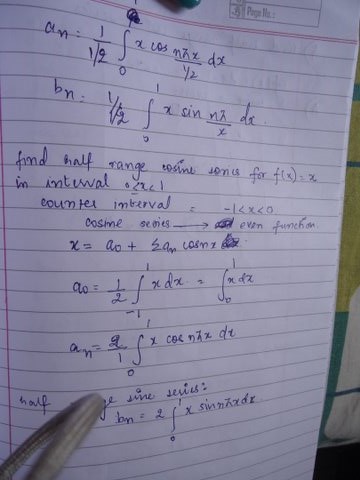 Page No.:
aₙ = 1/(1/2) ∫₀¹ x cos nπx/(1/2) dx
bₙ = 1/(1/2) ∫₀¹ x sin nπ/x dx
find half range cosine series for f(x) = x
in interval 0<x<1
counter interval = -1<x<0
cosine series → even function
x = a₀ + Σaₙ cosnx
a₀ = 1/2 ∫₋₁¹ x dx = ∫₀¹ x dx
aₙ = 2/1 ∫₀¹ x cos nπx dx
half sine series:
bₙ = 2 ∫₀¹ x sin nπx dx